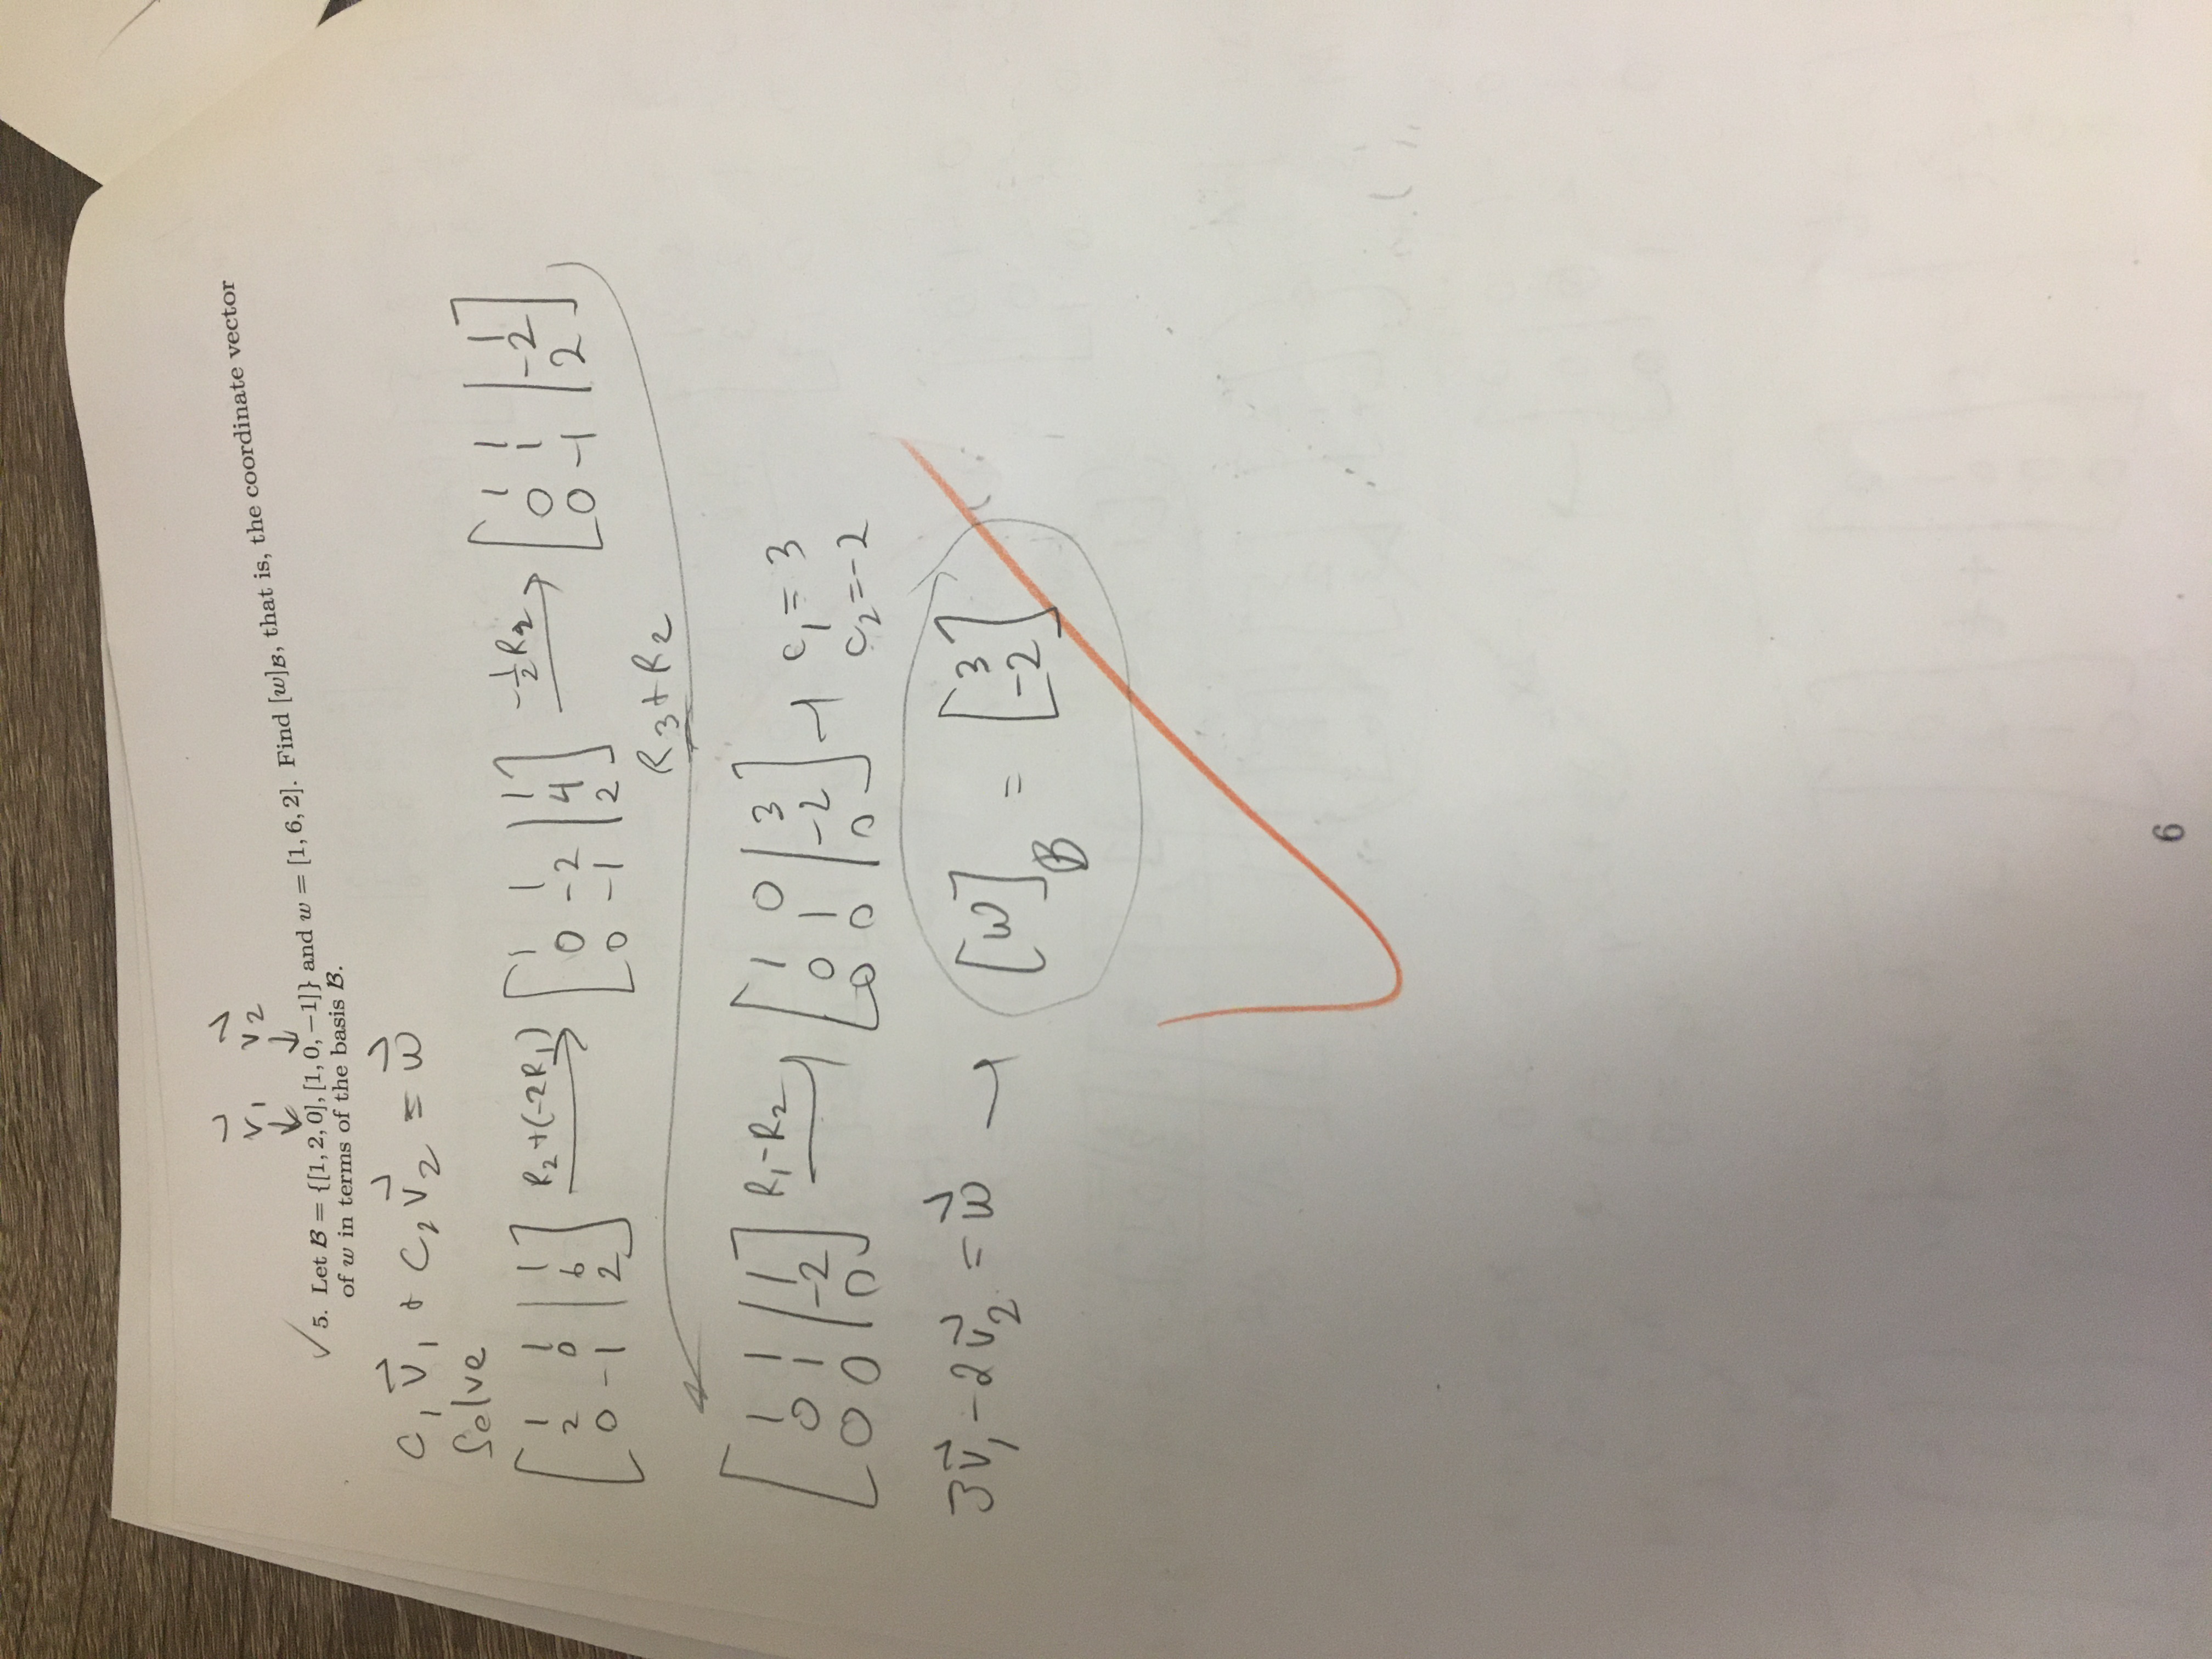 v⃗₁ v⃗₂
↓ ↓
✓ 5. Let ℬ = {[1, 2, 0], [1, 0, −1]} and w = [1, 6, 2]. Find [w]ℬ, that is, the coordinate vector
of w in terms of the basis ℬ.
c₁v⃗₁ + c₂v⃗₂ = w⃗
Solve
[1 1 | 1; 2 0 | 6; 0 -1 | 2] R₂+(-2R₁) → [1 1 | 1; 0 -2 | 4; 0 -1 | 2] -½R₂ → [1 1 | 1; 0 1 | -2; 0 -1 | 2]
R₃+R₂
[1 1 | 1; 0 1 | -2; 0 0 | 0] R₁-R₂ → [1 0 | 3; 0 1 | -2; 0 0 | 0] → c₁ = 3
c₂ = -2
3v⃗₁ - 2v⃗₂ = w⃗ → [w]_B = [3; -2]
6